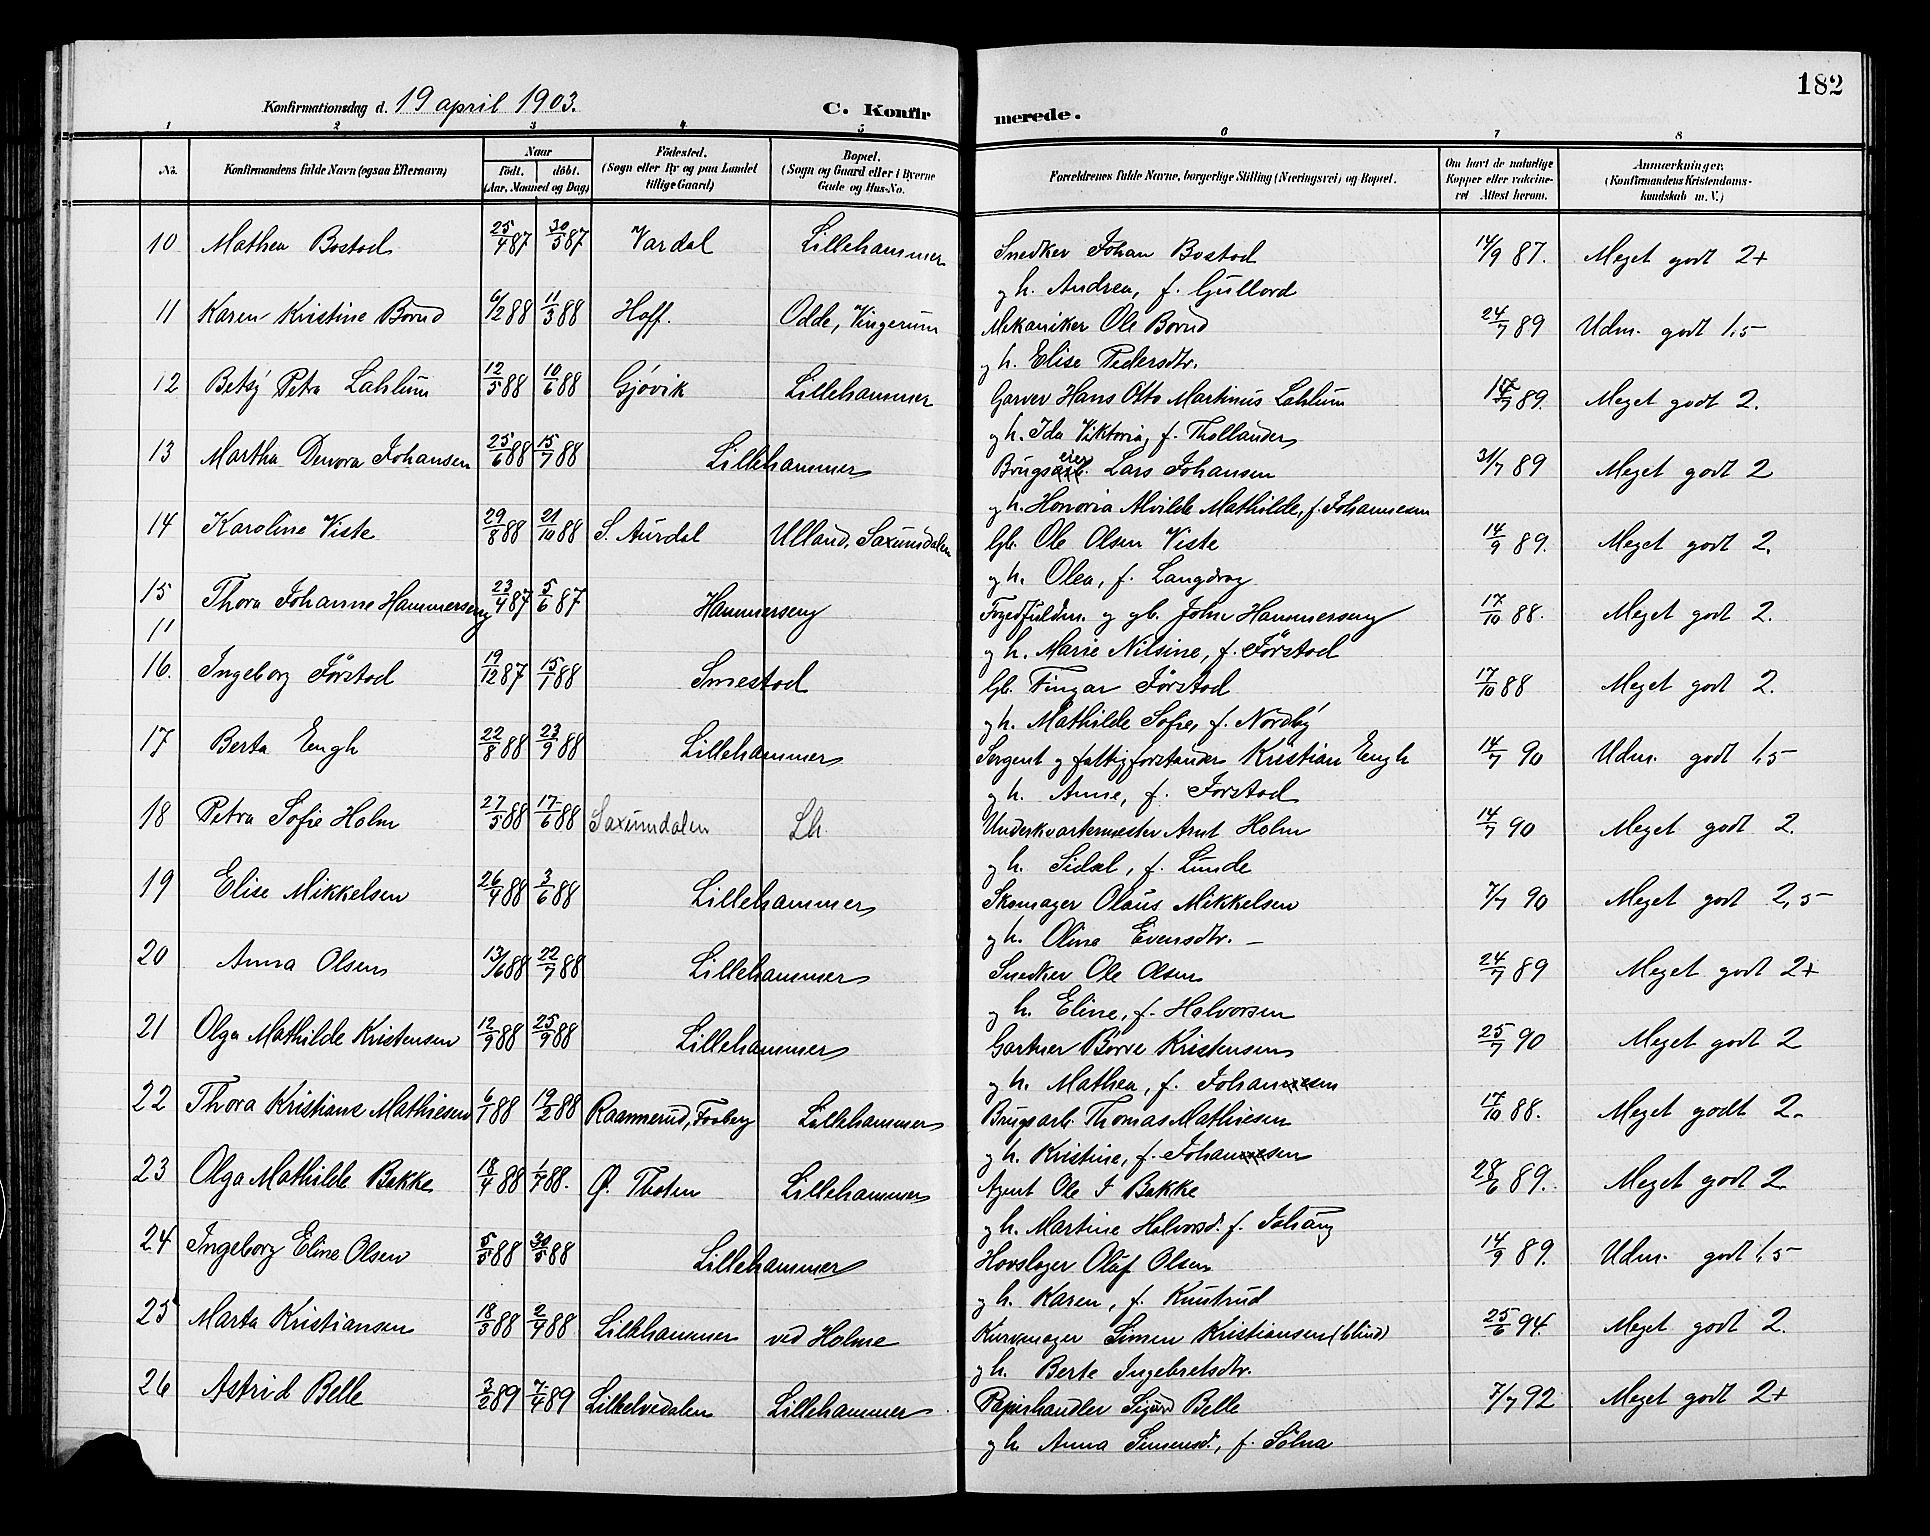 182
Konfirmationsdag d. 19 april 1903. C. Konfirmerede.
1 2 3 4 5 6 7 8
No. Konfirmandens fulde Navn (ogsaa Efternavn) Naar Födt. döbt. (Aar, Maaned og Dag) Födested. (Sogn eller By og paa Landet tillige Gaard) Bopæl. (Sogn og Gaard eller i Byerne Gade og Hus-No. Forældrenes fulde Navne, borgerlige Stilling (Næringsvei) og Bopæl. Om havt de naturlige Kopper eller vaccineret Attest herom. Anmærkninger. (Konfirmandens Kristendomskundskab m. V.)
10 Mathea Bostad 25/4 87 30/5 87 Vardal Lillehammer Snedker Johan Bostad 14/9 87. Meget godt 2+
g h. Andrea, f. Gullord
11 Karen Kristine Borud 6/2 88 11/3 88 Hoff. Odde, Vingerum Mekaniker Ole Borud 24/7 89 Udm. godt 1,5-
g h. Elise Pedersdtr.
12 Betsy Petra Lahlum 12/5 88 10/6 88 Gjøvik Lillehammer Garver Hans Otto Martinus Lahlum 89. Meget godt 2.
g h. Ida Viktoria, f. Thollander
13 Martha Denora Johansen 25/6 88 15/7 88 Lillehammer Brugseier Lars Johansen 31/7 89 Meget godt 2
g h. Honoria Alvilde Mathilde, f. Johannesen
14 Karoline Viste 29/8 88 21/10 88 S. Aurdal Ulland, Saxumdalen Gb. Ole Olsen Viste 14/9 89. Meget godt 2.
g h. Olea, f. Langdrag
15 Thora Johanne Hammerseng 23/4 87 5/6 87 Hammerseng Fogedfuldm. og gb. John Hammerseng 17/10 88. Meget godt 2.
11
g h. Marie Nilsine, f. Förstad
16. Ingeborg Förstad 19/12 87 15/1 88 Smestad Gb. Tingar Förstad 17/10 88 Meget godt 2.
g h. Mathilde Sofie, f. Nordby
17 Berta Engh 22/8 88 23/9 88 Lillehammer Sergent og fattigforstander Kristian Engh 14/7 90 Udm. godt 1,5-
g h. Anne, f. Forstad
18 Petra Sofie Holm 27/5 88 17/6 88 Saxumdalen Lh. Underkvartermester Arnt Holm 14/7 90 Meget godt 2.
g h. Sidsel, f. Lunde
19 Elise Mikkelsen 26/4 88 3/6 88 Lillehammer Skomager Olaus Mikkelsen 7/7 90 Meget godt 2,5-
g h. Oline Evensdtr. -
20 Anna Olsen 13/6 88 22/7 88 Lillehammer Snedker Ole Olsen 24/7 89 Meget godt 2+
g h. Eline, f. Halvorsen
21 Olga Mathilde Kristensen 12/9 88 25/9 88 Lillehammer Gartner Börre Kristensen 25/7 90 Meget godt 2
g h. Mathea, f. Johansen
22 Thora Kristiane Mathiesen 6/1 88 19/2 88 Raamerud, Faaberg Lillehammer Brugsarb. Thomas Mathiesen 17/10 88. Meget godt 2-
g h. Kristine, f. Johansen
23 Olga Mathilde Bakke 18/4 88 88. Ø. Thoten Lillehammer Agent Ole J Bakke 28/6 89. Meget godt 2
g h. Martine Halvorsd. f. Johang
24 Ingeborg Eline Olsen 5/5 88 30/5 88 Lillehammer Hovslager Oluf Olsen 14/9 89. Udm. godt 1,5-
g h. Karen, f. Knutrud
25 Marta Kristiansen 18/3 88 2/4 88 Lillehammer ved Holme Kurvmager Simen Kristiansen (blind) 25/6 94. Meget godt 2.
g h. Berte Ingebretsdtr.
26 Astrid Belle 3/2 89 7/4 89 Lillelvedalen Lillehammer Papirhandler Sigurd Belle 7/7 92 Meget godt 2+
g h. Anna Simensd., f. Sölna